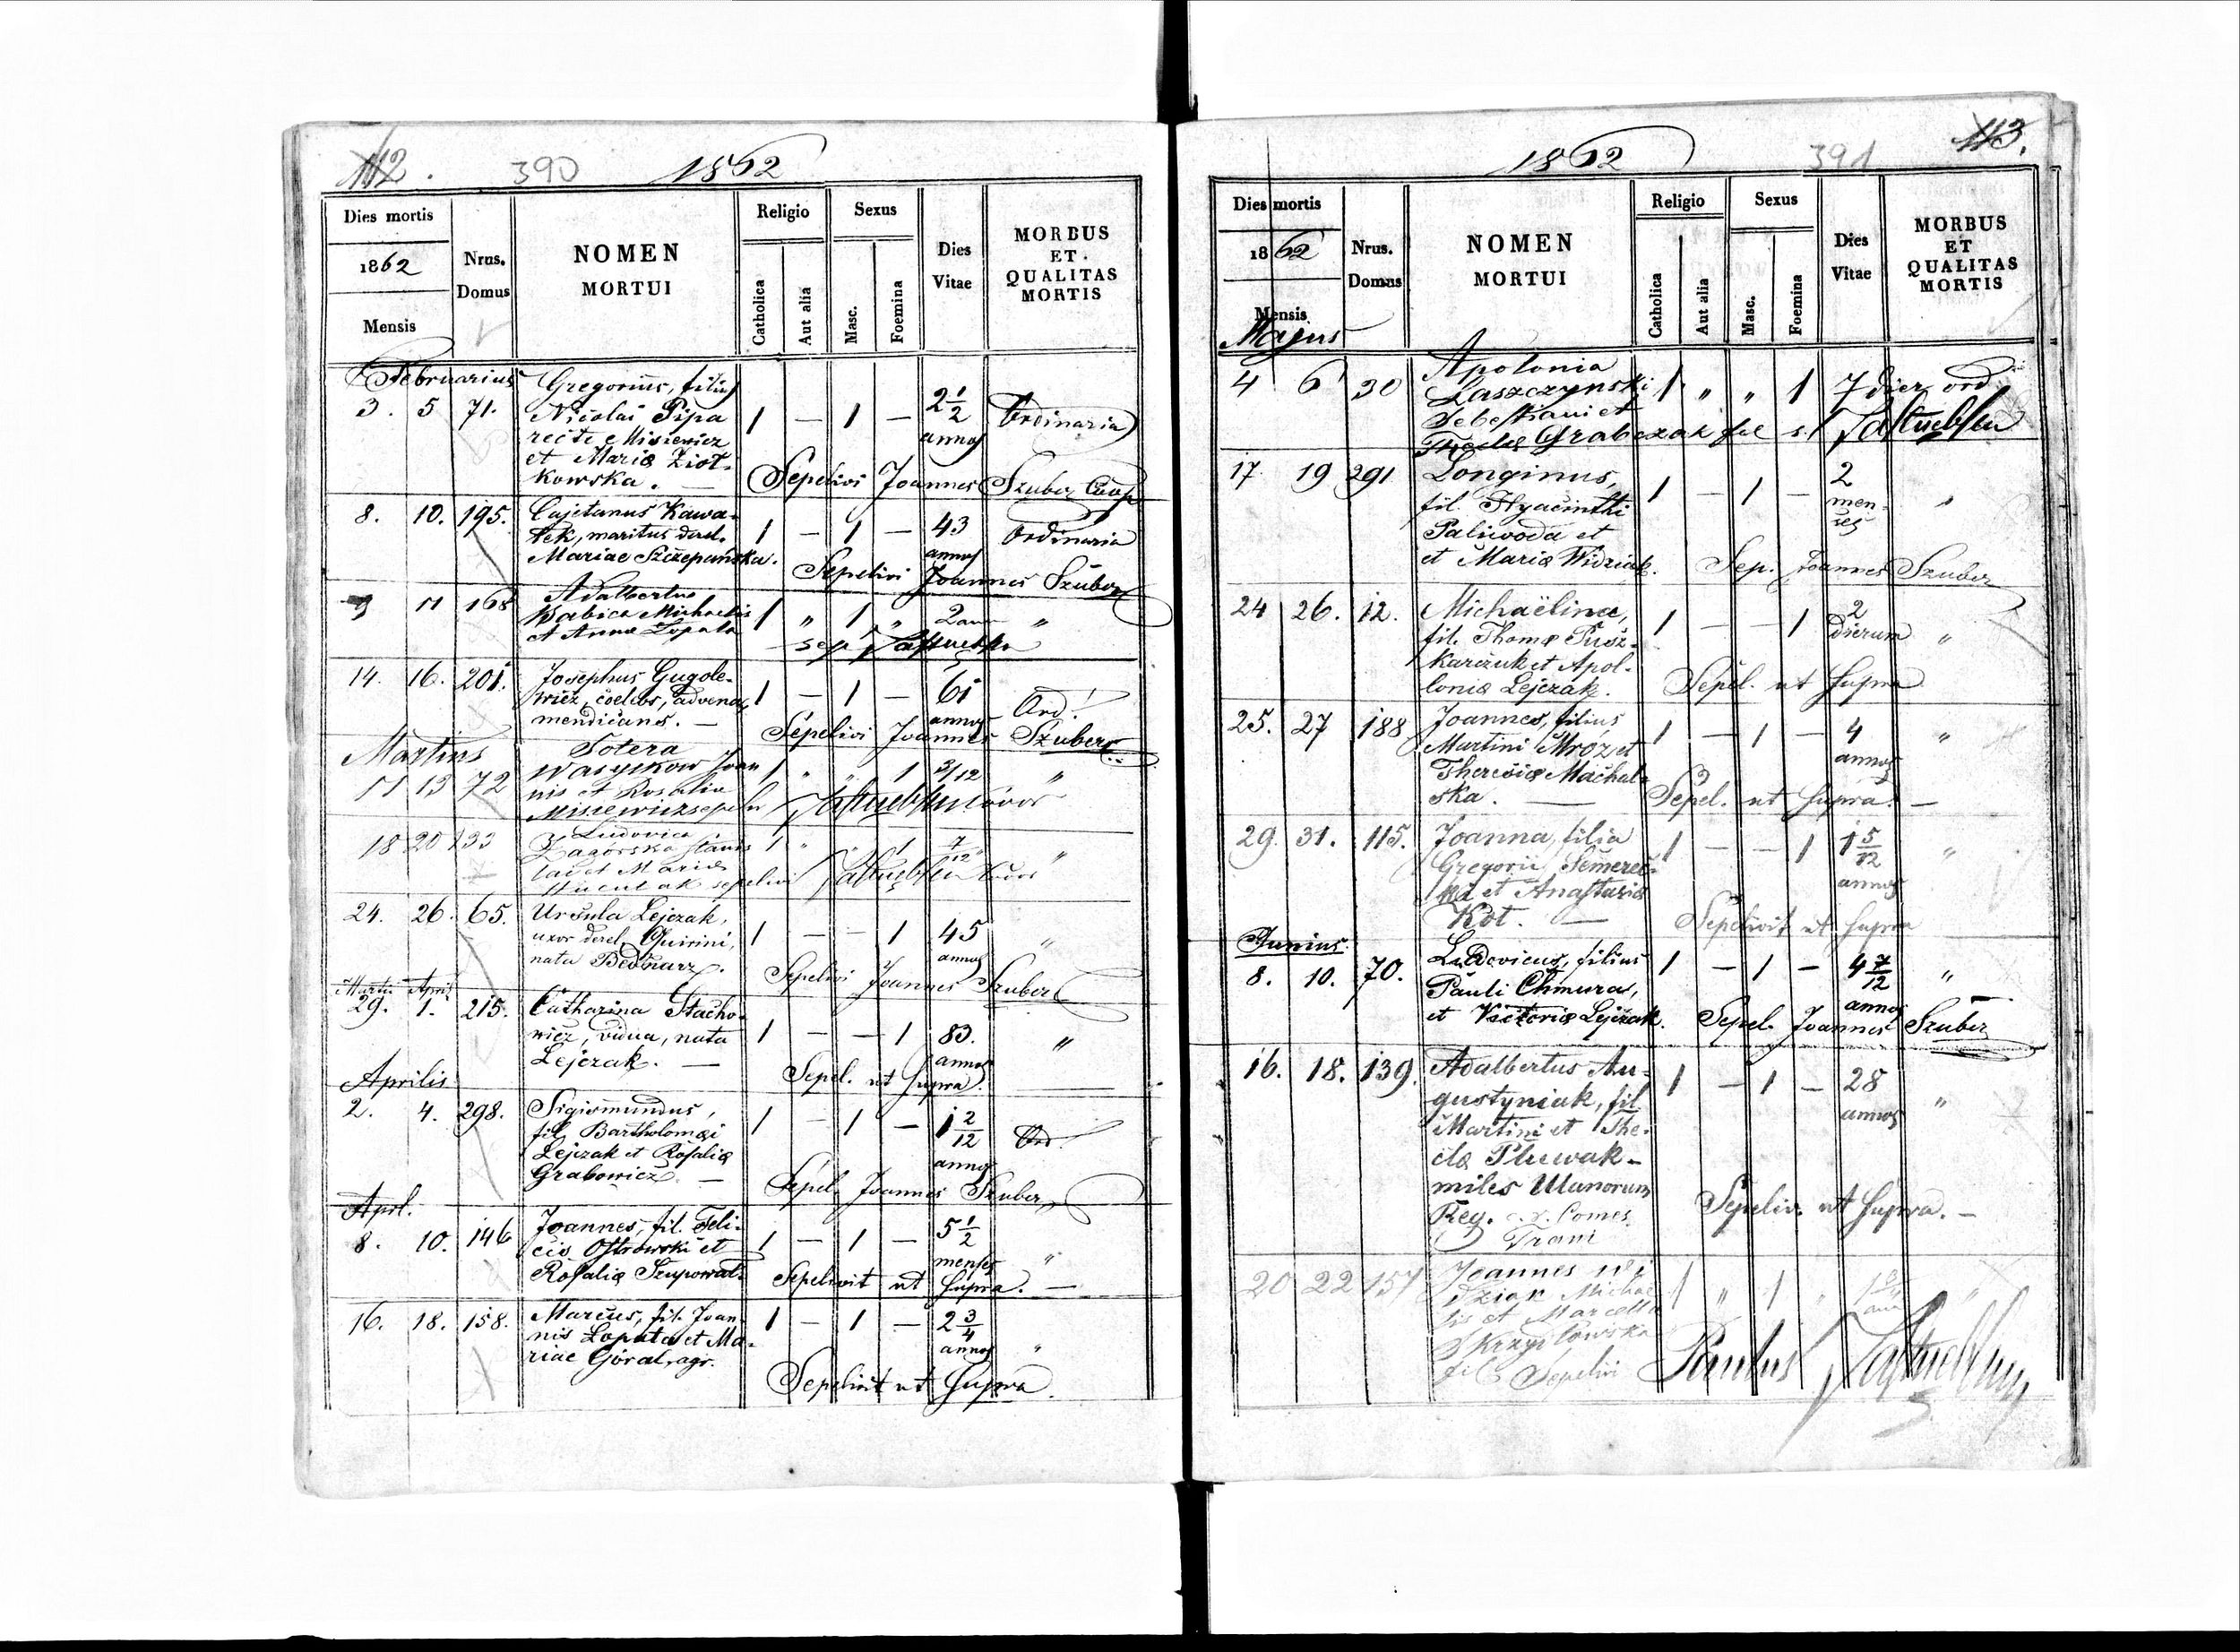 112. 390 1862
Dies mortis
1862
Mensis
Nrus.
Domus
NOMEN
MORTUI
Religio
Catholica
Aut alia
Sexus
Masc.
Foemina
Dies
Vitae
MORBUS
ET
QUALITAS
MORTIS
Februarius
3. 5 71. Gregorius, filius
Nicolai Pipa 1 – 1 – 2 1/2 Ordinaria
recte Misiewicz annos
et Mariæ Ziot-
kowska. — Sepelivi Joannes Szuber Coop
8. 10. 195. Cajetanus Kawa-
łek, maritus derel. 1 – 1 – 43 Ordinaria
Mariae Szczepańska. annos
Sepelivi Joannes Szuber
9 11 168 Adalbertus
Babica Michaelis 1 „ 1 „ 2 ann „
et Annæ Łopata
sep
14. 16. 201. Josephus Gugole-
wicz, coelebs, advena, 1 – 1 – 61 Ord.
mendicans. — annos
Sepelivi Joannes Szuber
Martius
11 13 72 Sotera
Wasylkow Joan 1 „ „ 1 3/12 „
nis et Rosalia
Misiewicz
18 20 133 Ludovica
Zagórska Stanis 1 „ „ 1 7/12 „
lai et Mariæ
sepelivi
24. 26. 65. Ursula Lejczak,
uxor derel. Quirini, 1 – – 1 45 „
nata Bednarz. annos
Sepelivi Joannes Szuber
Martii Apri
29. 1. 215. Catharina Stacho-
wicz, vidua, nata 1 – – 1 83. „
Lejczak. — annos
Sepel. ut supra.
Aprilis
2. 4. 298. Sigismundus, 1 – 1 – 1 2/12 Ord.
fil. Bartholomæi
Lejczak et Rosaliæ annos
Grabowicz. —
Sepel. Joannes Szuber
Aprl.
8. 10. 146 Joannes, fil. Feli- 5 1/2
cis Ostrowski et 1 – 1 – menses „
Rosaliæ Szupowal
Sepelivit ut supra. —
16. 18. 158. Marcus, fil. Joan- 1 – 1 – 2 3/4
nis Łopata et Ma- annos „
riae Góral, agr.
Sepelivit ut supra.
113. 391 1862
Dies mortis
1862
Mensis
Nrus.
Domus
NOMEN
MORTUI
Religio
Catholica
Aut alia
Sexus
Masc.
Foemina
Dies
Vitae
MORBUS
ET
QUALITAS
MORTIS
Majus
4 6 30 Apolonia
Laszczynski 1 „ „ 1 7 dier ord
Sebestiani et
Theclæ Grabczak
17. 19 291 Longinus, 2
fil. Hyacinthi 1 – 1 – men- „
Paliwoda et ses
et Mariæ Widziak. Sep. Joannes Szuber
24 26. 12. Michaëlina, 2
fil. Thomæ Pusz- 1 – – 1 dierum „
karczuk et Apol-
loniæ Lejczak. Sepel. ut supra
25. 27 188 Joannes, filius
Martini Mroz et 1 – 1 – 4 „
Theresiæ Machal- annos
ska. — Sepel. ut supra. —
29. 31. 115. Joanna, filia
Gregorii Semerec- 1 – – 1 1 5/12 „
ki et Anastasiæ annos
Kot. — Sepelivit ut supra
Junius.
8. 10. 70. Ludovicus, filius 1 – 1 – 4 7/12 „
Pauli Chmura, annos
et Victoriæ Lejczak. Sepel. Joannes Szuber
16. 18. 139. Adalbertus Au- 1 – 1 – 28
gustyniak, fil. annos „
Martini et The-
clæ Pluwak -
miles Ulanorum
Reg. Comes Sepeliv. ut supra. —
Trani
20 22 157 Joannes Wi
dziak Michae 1 „ 1 „
lis et Marcella
fil. Sepelivi Paulus